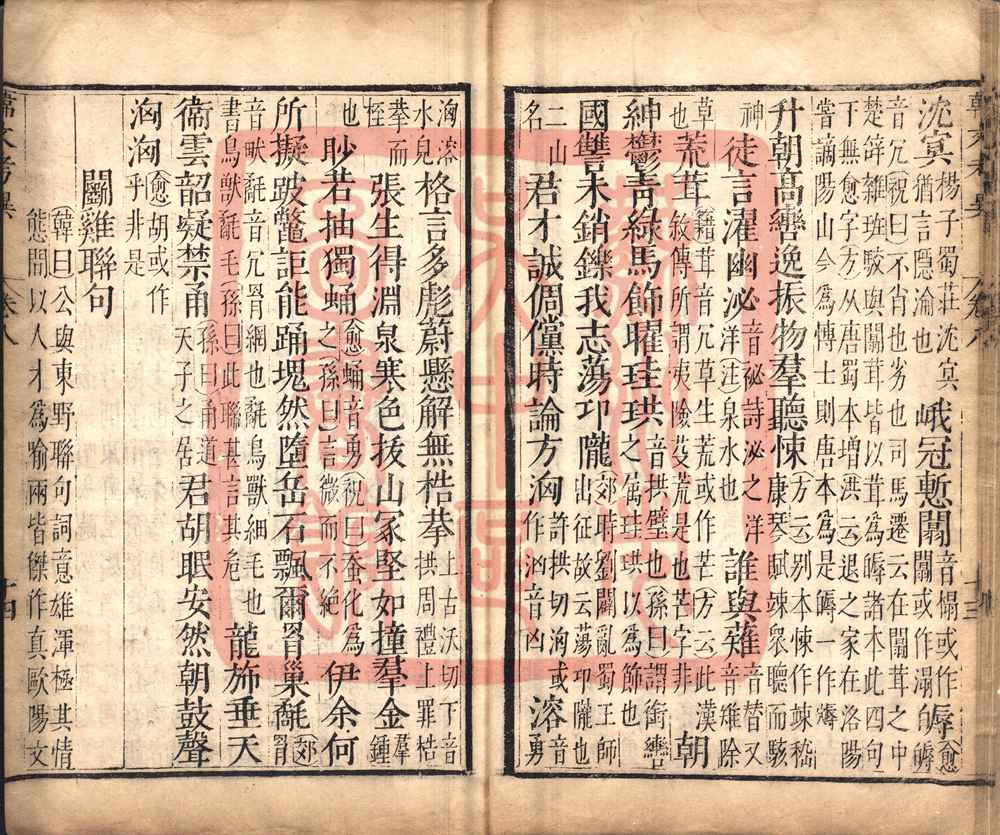 沈冥楊子蜀莊沈㝠猶言隱淪也峨冠慙闒音榻或作溻的嶙愈
音宂祝曰不肖也劣也司馬遷云在闒茸之中
楚辞雜班駮與闒茸皆以茸為𡲰諸本此四句
下無愈字方从唐蜀本增洪云退之家在洛陽
嘗謫陽山今為博士則唐本為是𡲰一作㺓
升朝高轡逸振物羣聽悚方云别本悚作竦嵇康琴賦竦衆聽而駭
神徒言濯幽泌音祕詩泌之洋洋注泉水也誰與薙音替又音雉除
草也荒茸籍茸音宂草生荒或作芒方云此漢敘傳所謂夷險芟荒是也芒字非朝
紳鬱青綠馬飾曜珪珙音拱璧也孫曰謂銜轡之属珪珙以為飾也
國讐未銷鑠我志蕩卭隴郊時劉闢亂蜀王師出征故云蕩卭隴也
二山名君才誠倜儻時論方洶許拱切洶或作汹音凶溶勇
洶溶水皃格言多彪蔚懸解無梏拲上古沃切下音拱周禮上罪梏
拲而桎張生得淵泉寒色拔山冢堅如撞羣金羣鍾
也眇若抽獨蛹愈蛹音勇祝曰蚕化為之孫曰言微而不絶伊余何
所擬跛鼈詎能踊塊然墮岳石飄爾罥巢氄郊罥
音畎氄音宂罥網也氄鳥獸細毛也
書鳥獸氄毛孫曰此聯甚言其危龍旆垂天
衞雲韶凝禁甬孫曰甬道天子之居君胡眠安然朝鼓聲
洶洶愈胡或作乎非是
鬬雞聯句
韓曰公與東野聯句詞意雄渾極其情
態間以人才為喻兩皆傑作真歐陽文